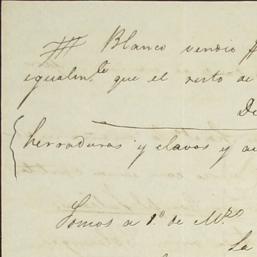 Blanco vendio
igualm.te que el resto de
De
herraduras y clavos y
Somos a 1.º de Mzo
La